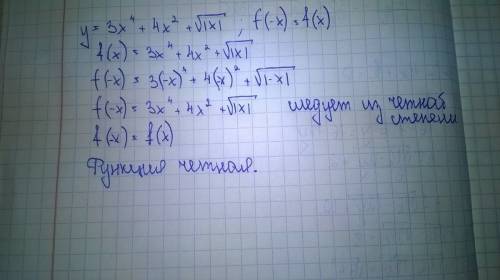 y = 3x⁴ + 4x² + √|x| ; f(-x) = f(x)
f(x) = 3x⁴ + 4x² + √|x|
f(-x) = 3(-x)⁴ + 4(-x)² + √|-x|
f(-x) = 3x⁴ + 4x² + √|x| следует из четной степени
f(-x) = f(x)
Функция четная.